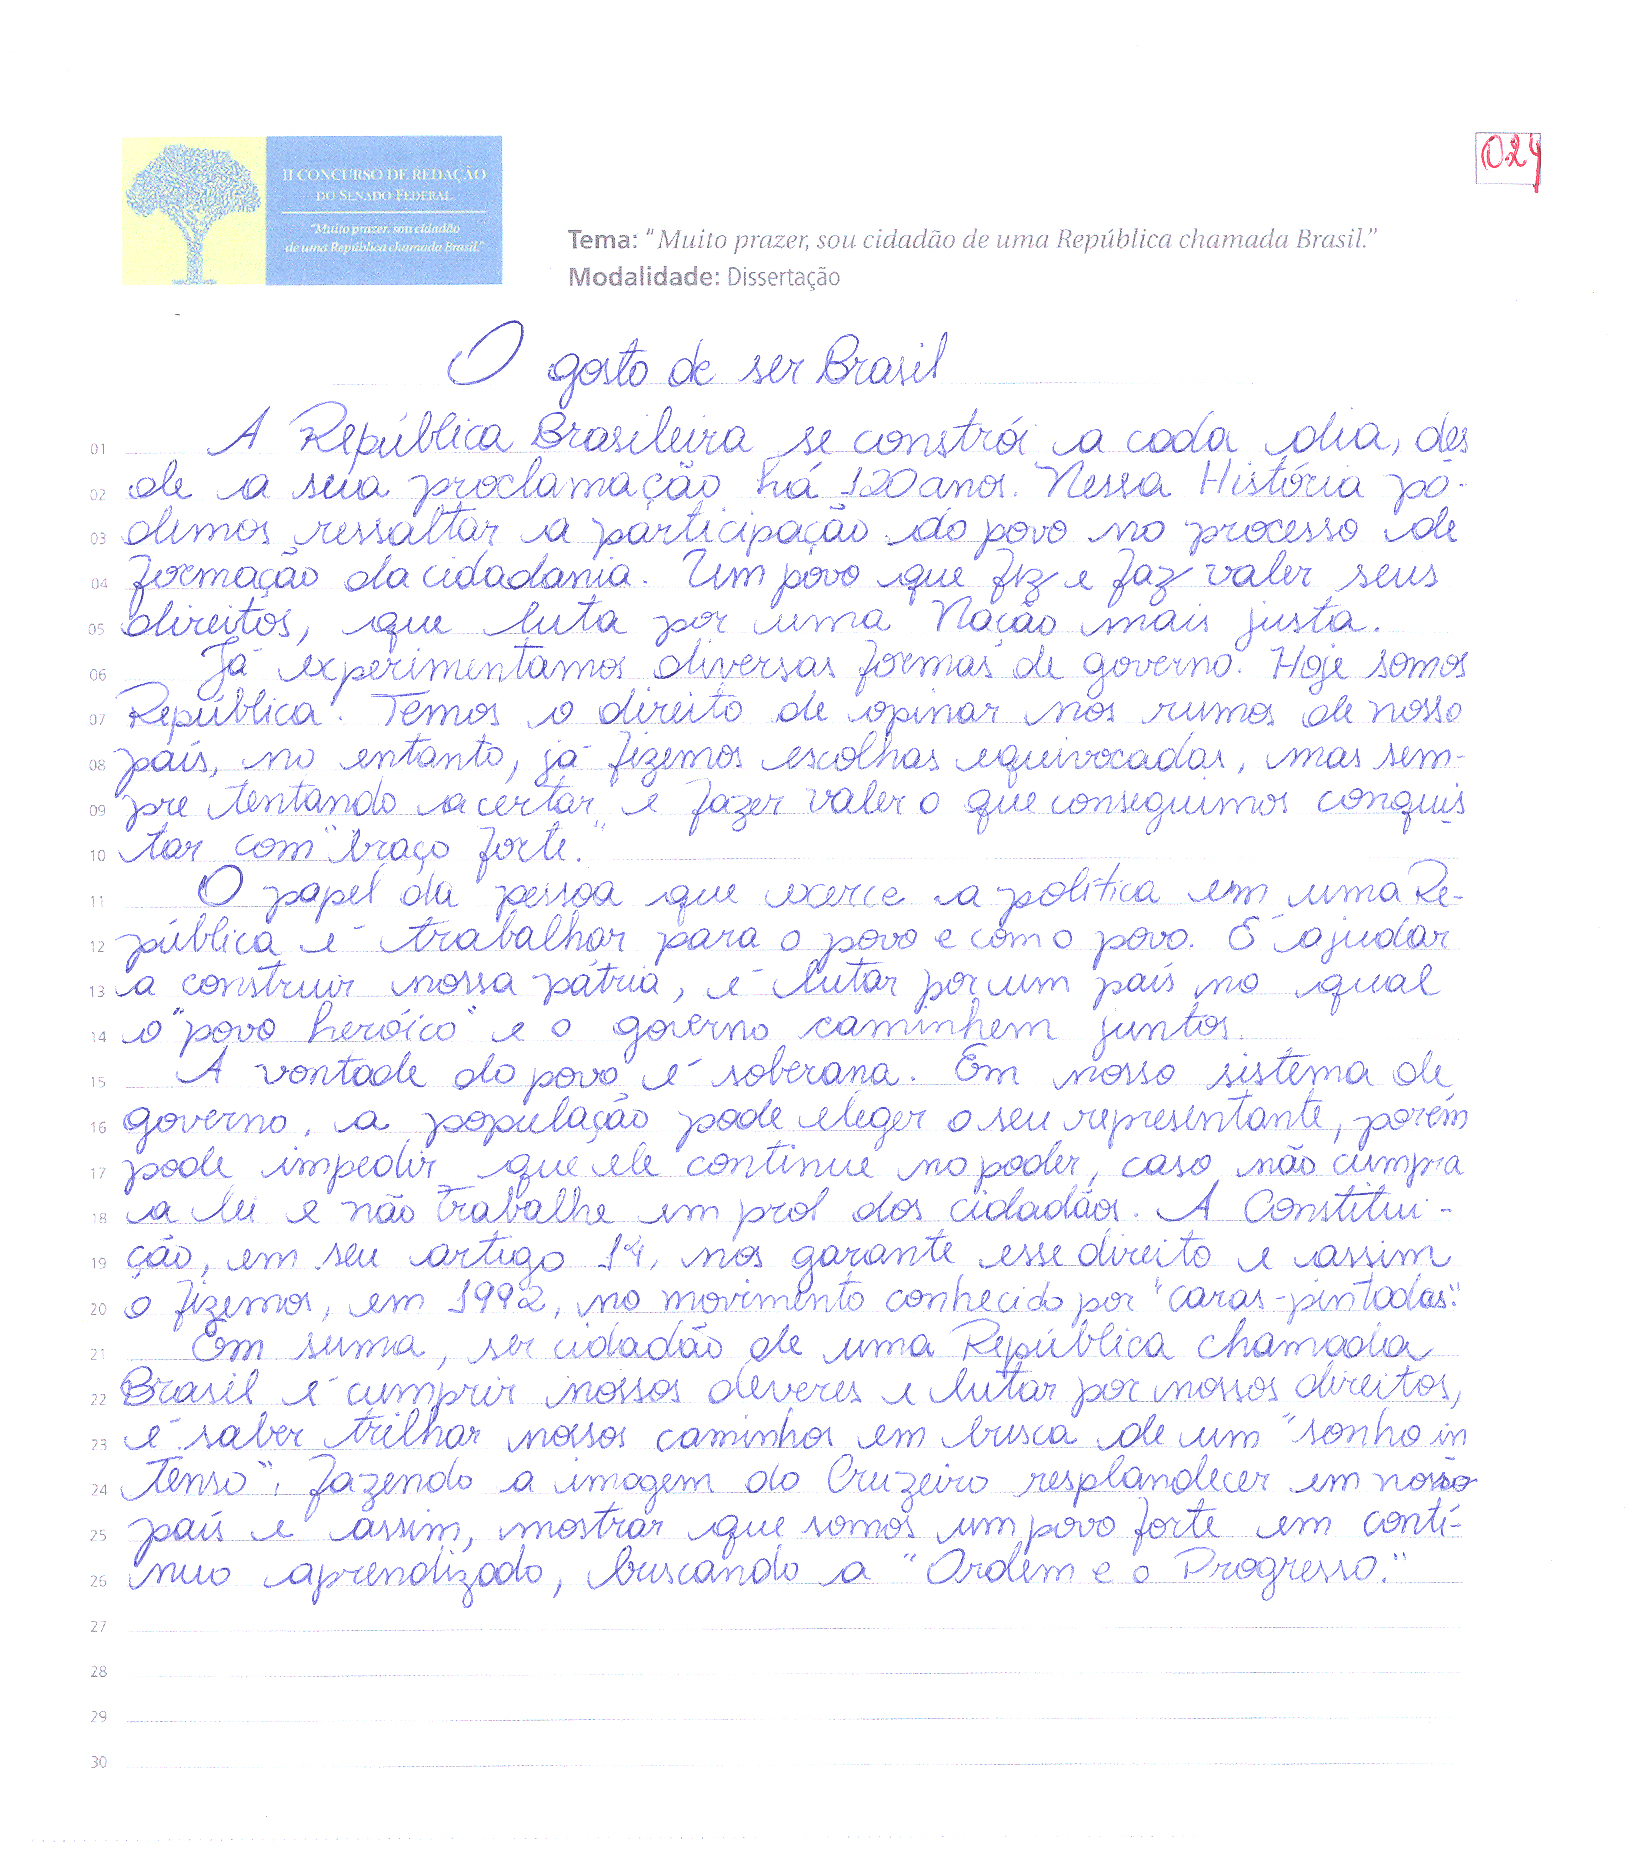 II CONCURSO DE REDAÇÃO
DO SENADO FEDERAL
"Muito prazer, sou cidadão
de uma República chamada Brasil."
024
Tema: "Muito prazer, sou cidadão de uma República chamada Brasil."
Modalidade: Dissertação
O gosto de ser Brasil
01 A República Brasileira se constrói a cada dia, des
02 de a sua proclamação há 120 anos. Nessa História po-
03 demos ressaltar a participação do povo no processo de
04 formação da cidadania. Um povo que fiz e faz valer seus
05 direitos, que luta por uma Nação mais justa.
06 Já experimentamos diversas formas de governo. Hoje somos
07 República. Temos o direito de opinar nos rumos de nosso
08 país, no entanto, já fizemos escolhas equivocadas, mas sem-
09 pre tentando acertar e fazer valer o que conseguimos conquis
10 tar com "braço forte."
11 O papel da pessoa que exerce a política em uma Re-
12 pública é trabalhar para o povo e com o povo. É ajudar
13 a construir nossa pátria, é lutar por um país no qual
14 o "povo heróico" e o governo caminhem juntos.
15 A vontade do povo é soberana. Em nosso sistema de
16 governo, a população pode eleger o seu representante, porém
17 pode impedir que ele continue no poder, caso não cumpra
18 a lei e não trabalhe em prol dos cidadãos. A Constitui-
19 ção, em seu artigo 14, nos garante esse direito e assim
20 o fizemos, em 1992, no movimento conhecido por "caras-pintadas."
21 Em suma, ser cidadão de uma República chamada
22 Brasil é cumprir nossos deveres e lutar por nossos direitos,
23 é saber trilhar nossos caminhos em busca de um "sonho in
24 tenso", fazendo a imagem do Cruzeiro resplandecer em nosso
25 país e assim, mostrar que somos um povo forte em contí-
26 nuo aprendizado, buscando a "Ordem e o Progresso."
27
28
29
30